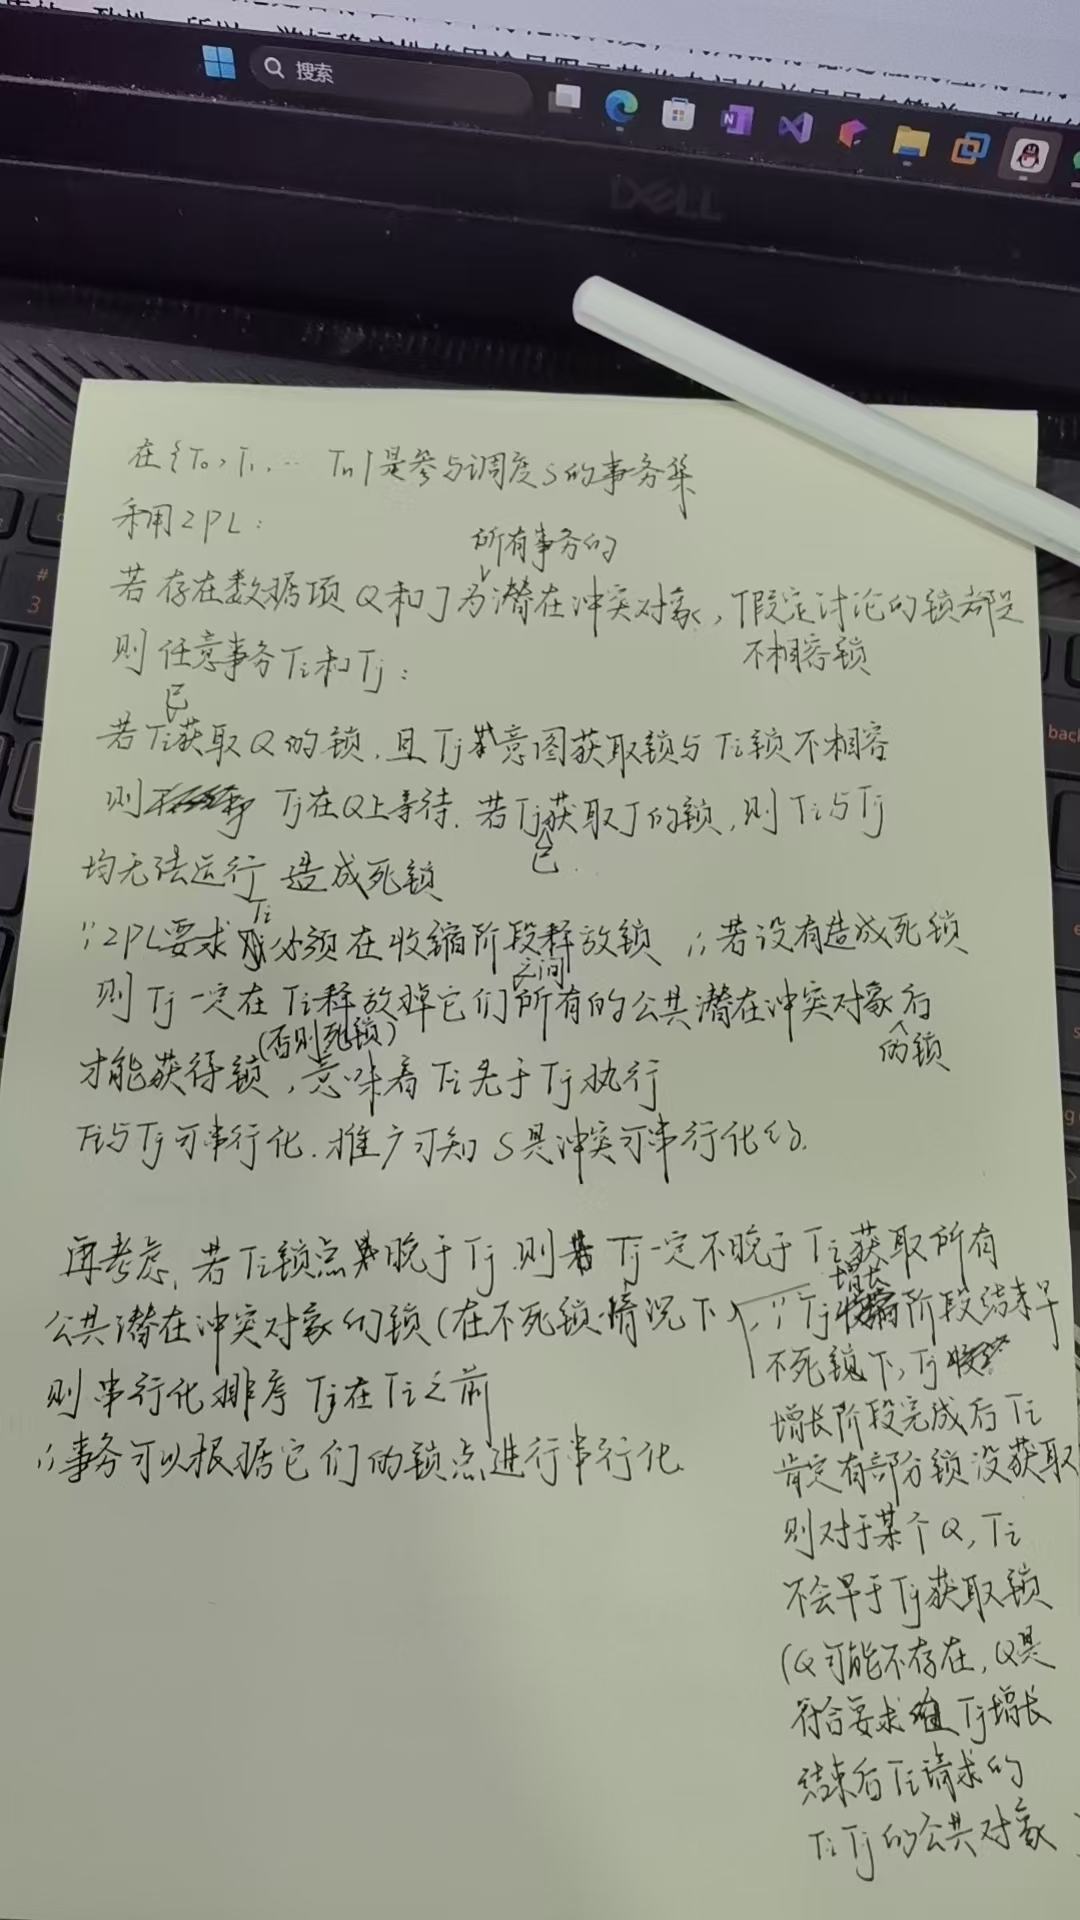 搜索
DELL
在{T0,T1,… Tn}是参与调度S的事务集
利用2PL:
所有事务的
若存在数据项Q和J为潜在冲突对象,假定讨论的锁都是
不相容锁
则任意事务Ti和Tj:
若Ti已获取Q的锁,且Tj意图获取锁与Ti锁不相容
则 Tj在Q上等待.若Tj已获取J的锁,则Ti与Tj
均无法运行 造成死锁
∵2PL要求Ti必须在收缩阶段释放锁 ∴若没有造成死锁
则Tj一定在Ti释放掉它们之间所有的公共潜在冲突对象的锁后
才能获得锁(否则死锁),意味着Ti先于Tj执行
Ti与Tj可串行化.推广可知S是冲突可串行化的.
再考虑,若Ti锁点晚于Tj.则Tj一定不晚于Ti获取所有
公共潜在冲突对象的锁(在不死锁情况下)
则串行化排序Tj在Ti之前
∴事务可以根据它们的锁点进行串行化.
∵Tj增长阶段结束早
不死锁下,Tj
增长阶段完成后Ti
肯定有部分锁没获取
则对于某个Q,Ti
不会早于Tj获取锁
(Q可能不存在,Q是
符合要求在Tj增长
结束后Ti请求的
TiTj的公共对象